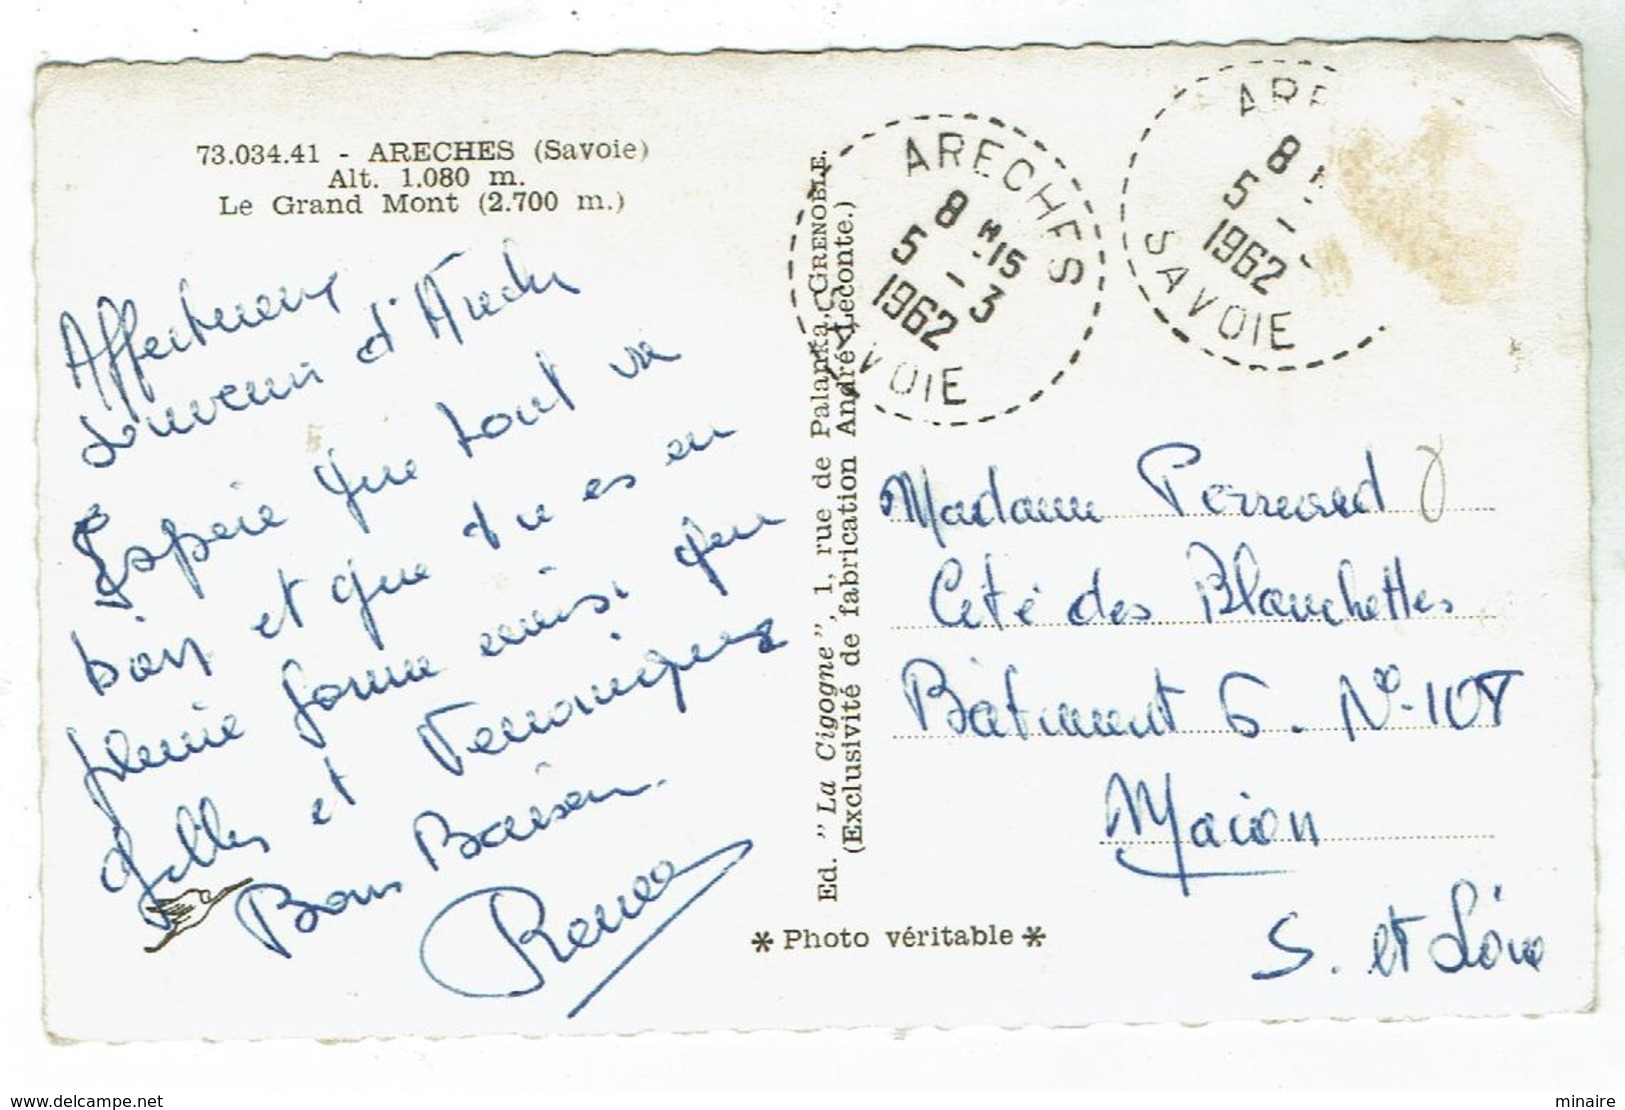 73.034.41 - ARECHES (Savoie)
Alt. 1.080 m.
Le Grand Mont (2.700 m.)
Affectueux
souvenir d'Arêches
Espère que tout va
bien et que tu es en
pleine forme ainsi que
Gilles et
Bons Baisers.
Renée
Ed. "La Cigogne", 1, rue de Palanka, GRENOBLE.
(Exclusivité de fabrication André Leconte.)
* Photo véritable *
ARECHES
8 H 15
5 - 3
1962
SAVOIE
ARE
8 H
5 -
1962
SAVOIE
Madame Perraud
Cité des Blanchettes
Bâtiment 6. N°. 108
Macon
S. et Loire
www.delcampe.net
minaire